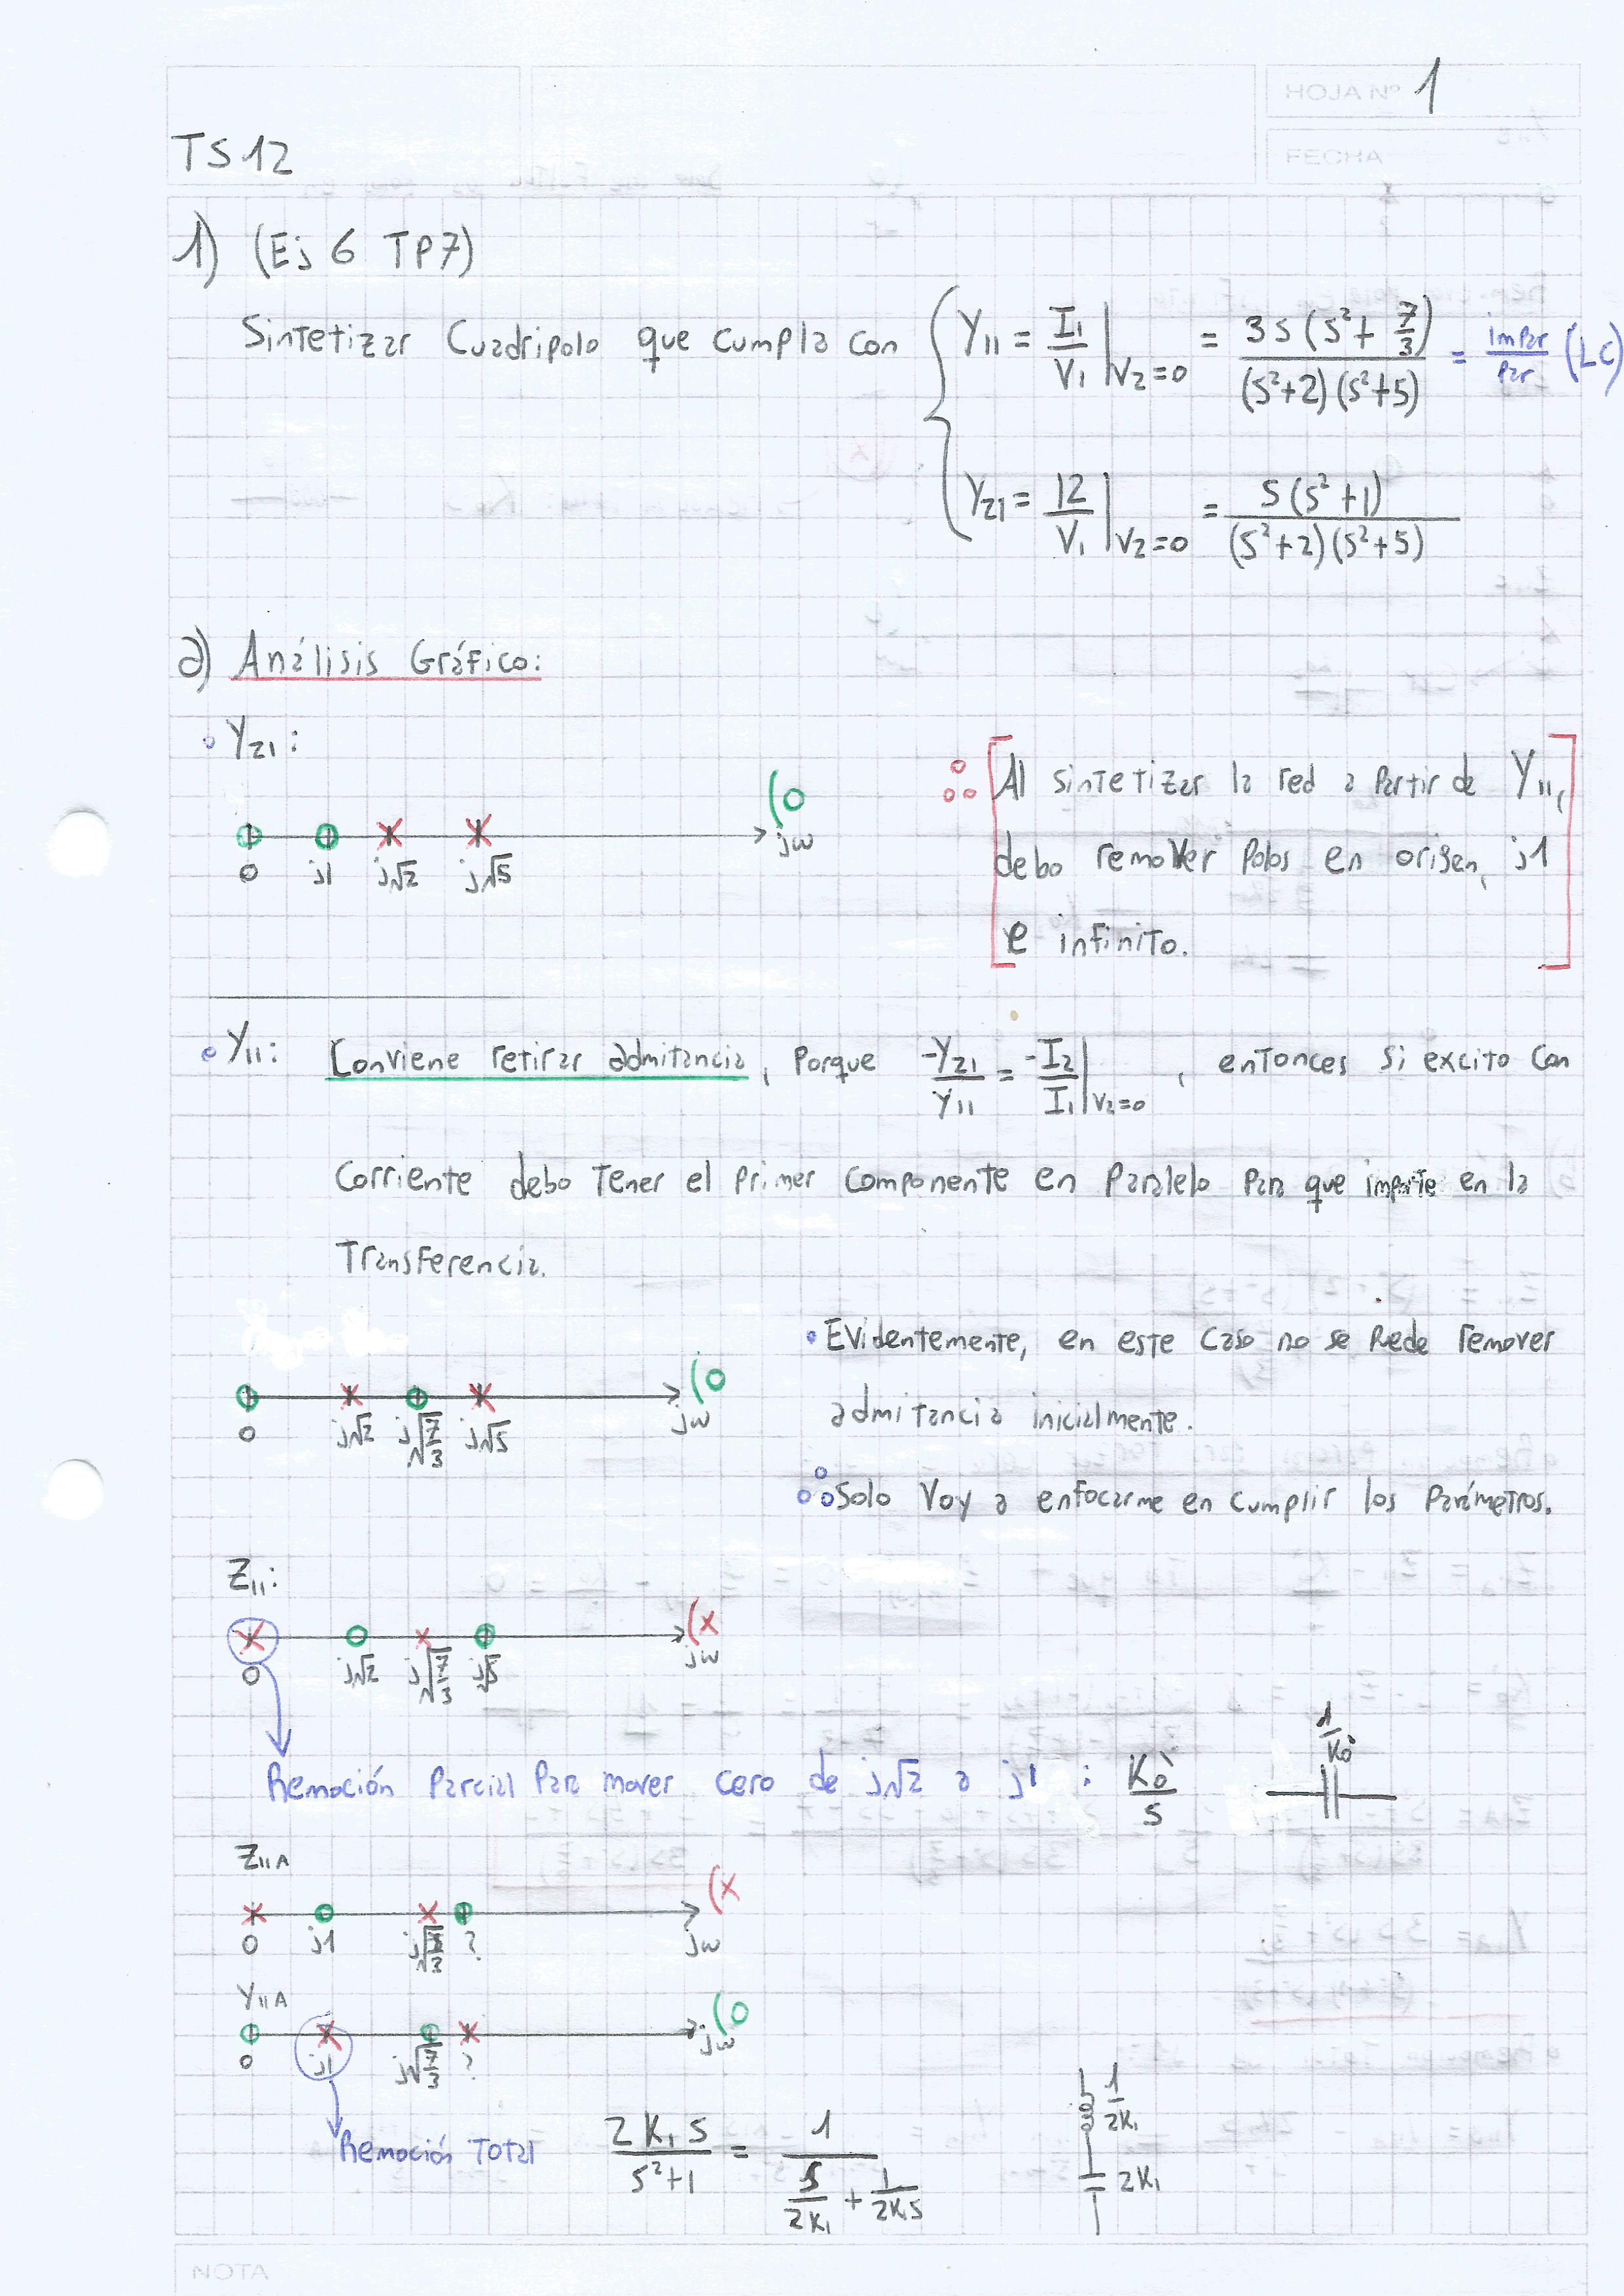 HOJA Nº 1
FECHA
TS12
1) (Ej 6 TP7)
Sintetizar Cuadripolo que cumpla con { Y11 = I1/V1 |V2=0 = 3s(s²+7/3) / (s²+2)(s²+5) = impar/par (LC)
Y21 = I2/V1 |V2=0 = s(s²+1) / (s²+2)(s²+5)
a) Análisis Gráfico:
• Y21:
0 j1 j√2 j√5 jω
∴ [Al sintetizar la red a partir de Y11,
debo remover polos en origen, j1
e infinito.]
• Y11: Conviene retirar admitancia, porque -Y21/Y11 = -I2/I1 |V2=0 , entonces si excito con
corriente debo tener el primer componente en paralelo para que importe en la
transferencia.
0 j√2 j√7/3 j√5 jω
• Evidentemente, en este caso no se puede remover
admitancia inicialmente.
∴ Solo voy a enfocarme en cumplir los parámetros.
Z11:
0 j√2 j√7/3 j√5 jω
Remoción parcial para mover cero de j√2 a j1 : K0'/s 1/K0'
Z11A
0 j1 j√7/3 ? jω
Y11A
0 j1 j√7/3 ? jω
Remoción Total 2K1s/(s²+1) = 1/(s/2K1 + 1/2K1s) 1/2K1
2K1
NOTA